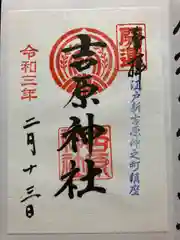 奉拝
江戸新吉原仲之町鎮座
吉原神社
令和三年
二月十三日